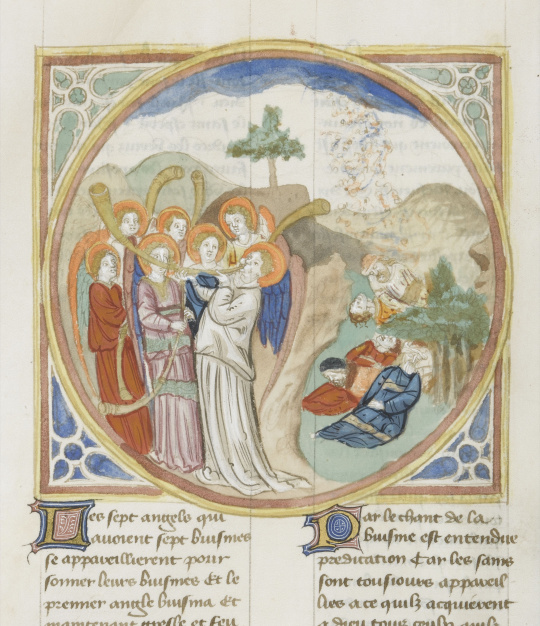 Les sept angels qui
auoient sept buisines
se appareillierent pour
sonner leurs buisines Et le
premier angle buisina Et
maintenant gresle et feu
Par le chant de la
buisine est entendue
predication Car les sains
sont tousiours appareil
lies a ce quilz acquierent
a dieu tous ceulx quilz